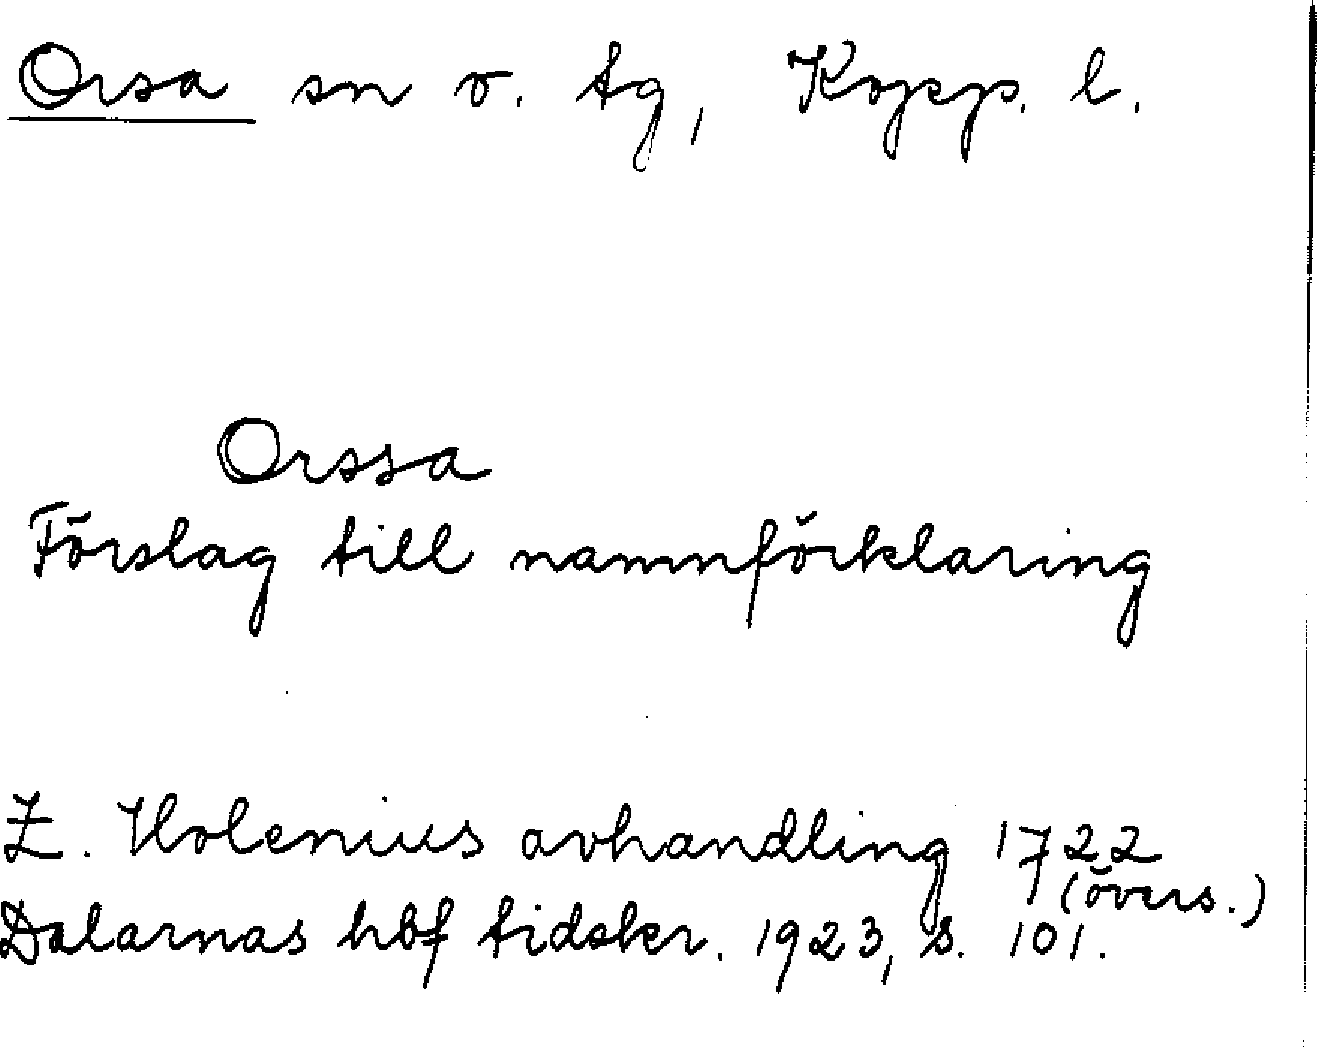 Orsa sn o. tg, Kopp. l.
Orssa
Förslag till namnförklaring
Z. Holenius avhandling 1722
(övers.)
Dalarnas hbf tidskr. 1923, s. 101.